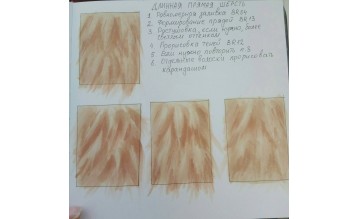 ДЛИННАЯ ПРЯМАЯ ШЕРСТЬ
1. Равномерная заливка
2. Формирование прядей
3. если нужно, более
светлым оттенком
4. Прорисовка теней
5. Если нужно повторить п. 3
6. Отдельные волоски прорисовать
карандашом